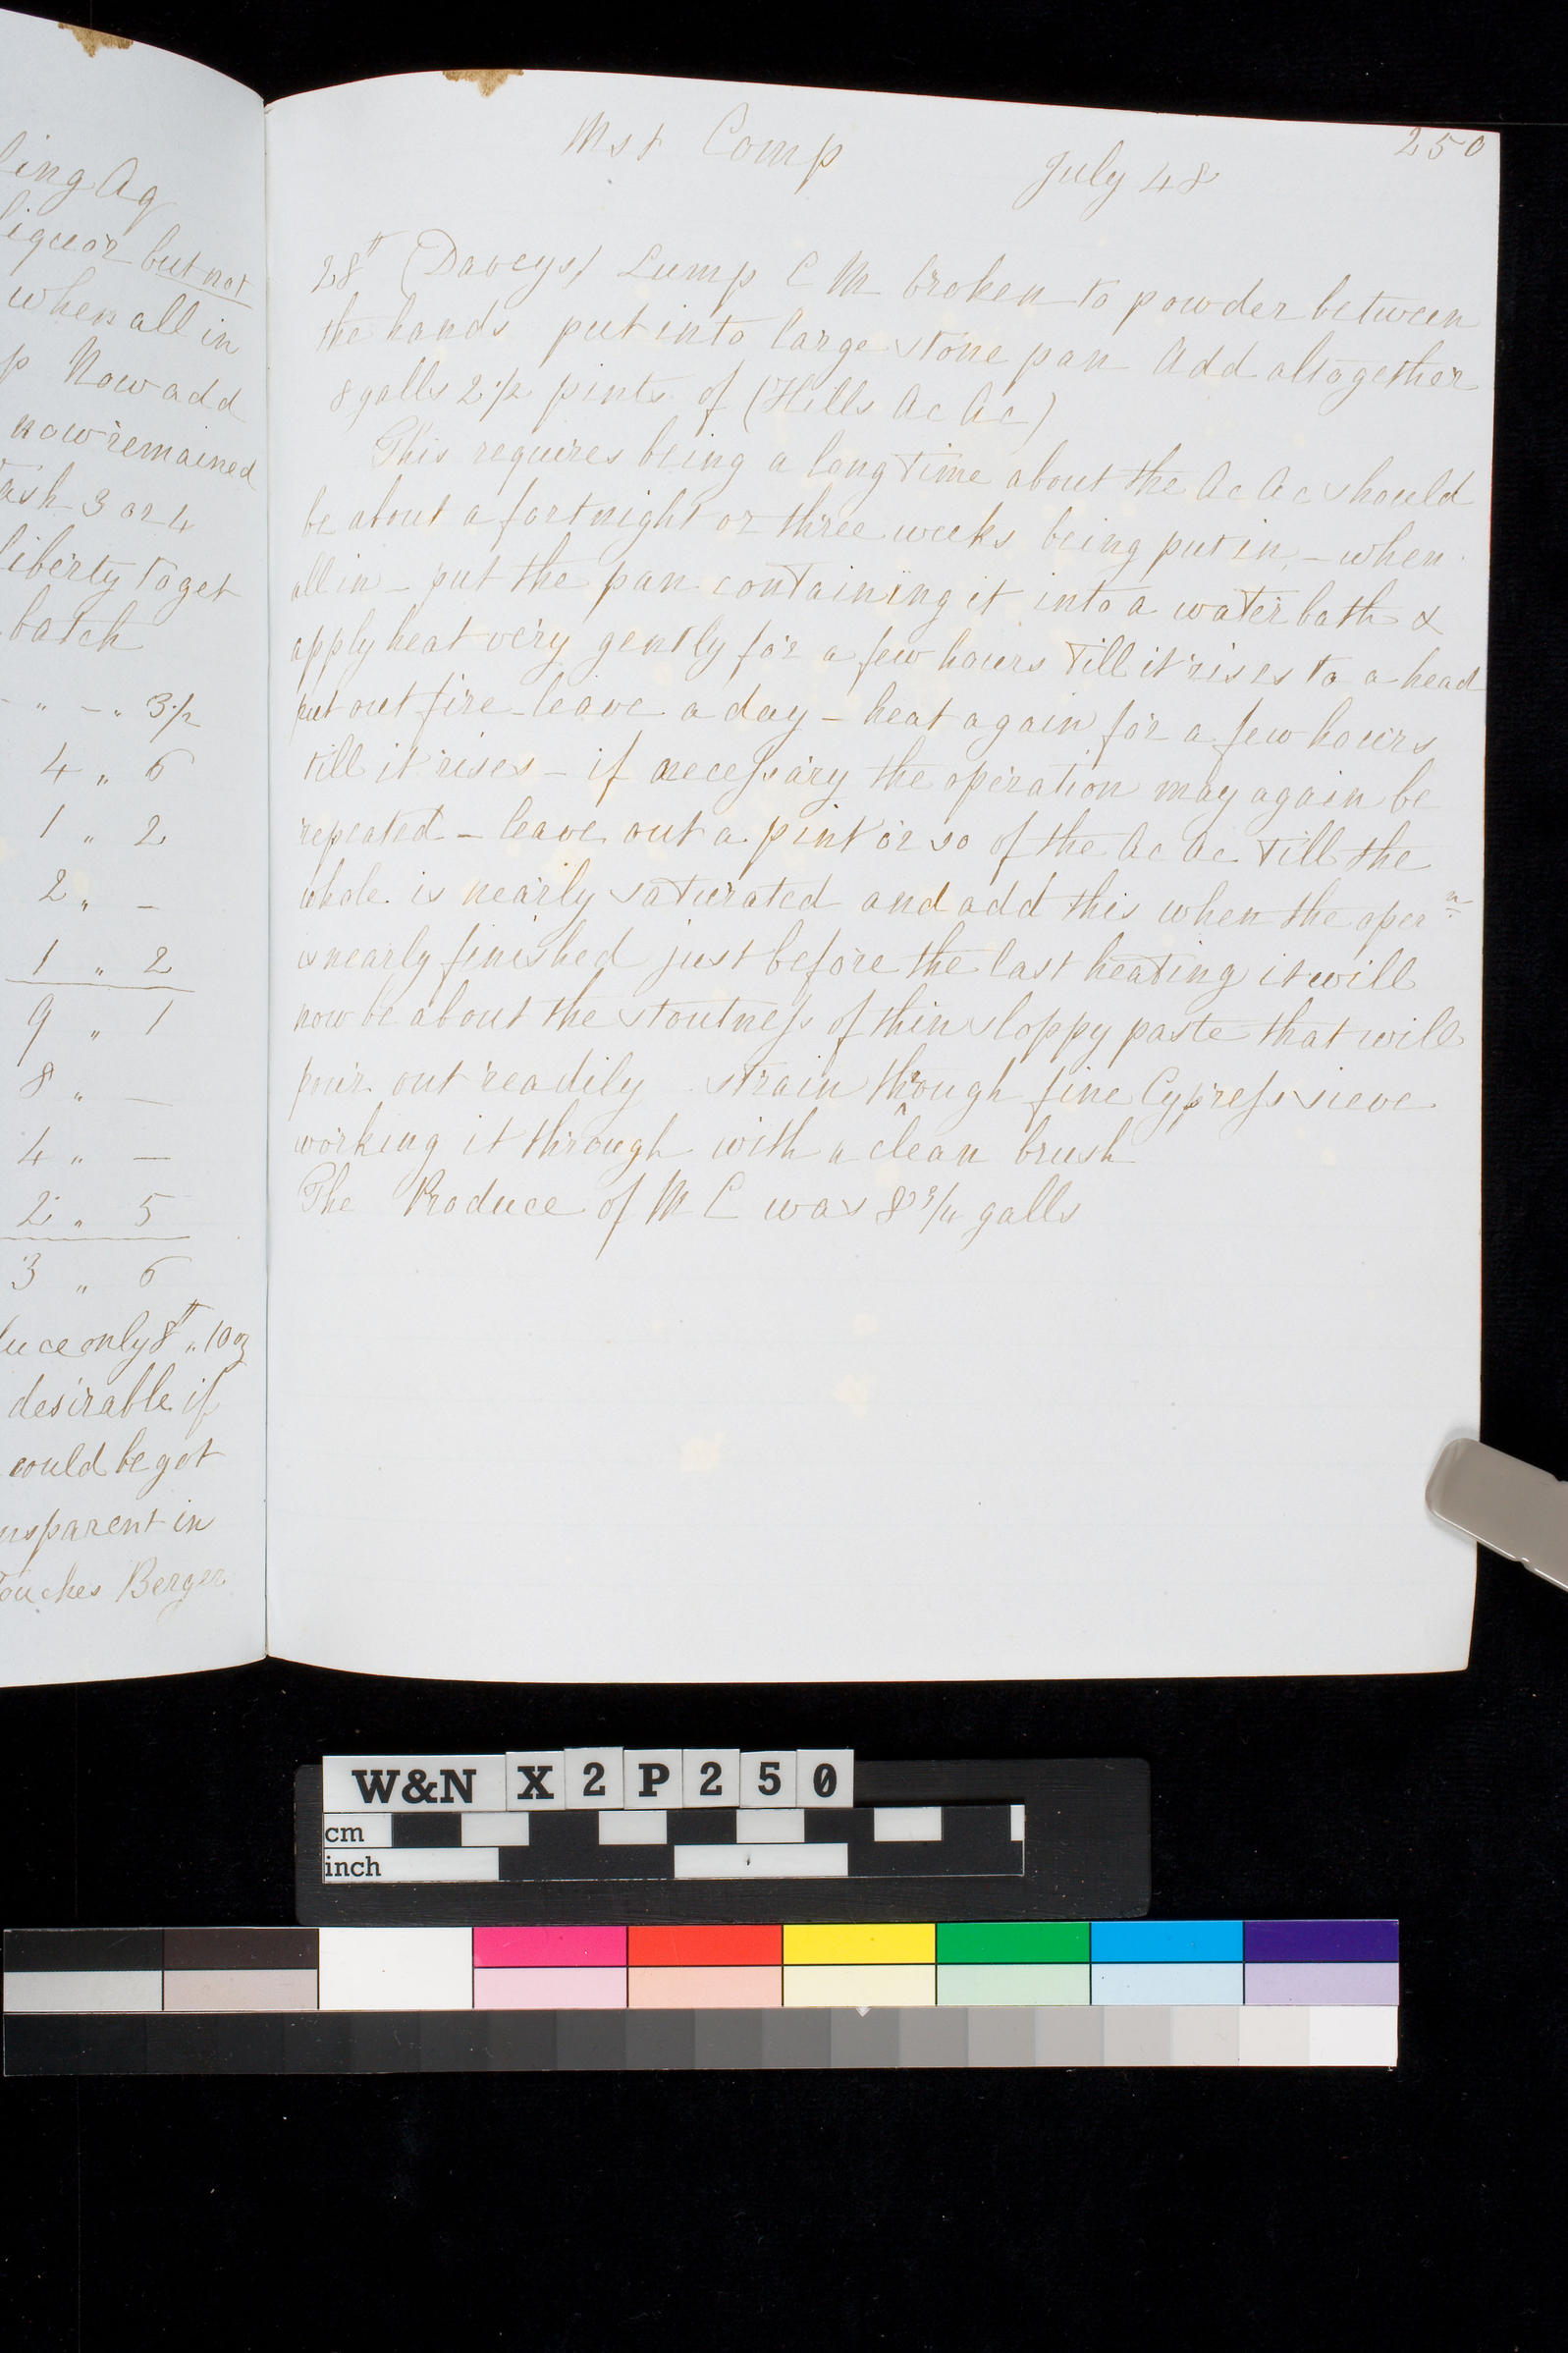 ling Aq
liquor but not
when all in
p Now add
now remained
ash 3 or 4
liberty to get
batch
" - " 3 1/2
4 " 6
1 " 2
2 " -
1 " 2
9 " 1
8 " -
4 " -
2 " 5
3 " 6
duce only 8 lb " 10 oz
desirable if
could be got
nsparent in
touches Berger
250
Mst Comp
July 48
28 lb (Daveys) Lump C M broken to powder between
the hands put into large stone pan Add altogether
8 galls 2 1/2 pints of (Hills Ac Ac)
This requires being a long time about the Ac Ac should
be about a fortnight or three weeks being put in - when
all in - put the pan containing it into a water bath &
apply heat very gently for a few hours till it rises to a head
put out fire - leave a day - heat again for a few hours
till it rises - if necessary the operation may again be
repeated - leave out a pint or so of the Ac Ac till the
whole is nearly saturated and add this when the oper n
is nearly finished just before the last heating it will
now be about the stoutness of thin sloppy paste that will
pour out readily strain through fine Cypress sieve
working it through with a clean brush
The Produce of M C was 8 3/4 galls
W&N X2P250
cm
inch